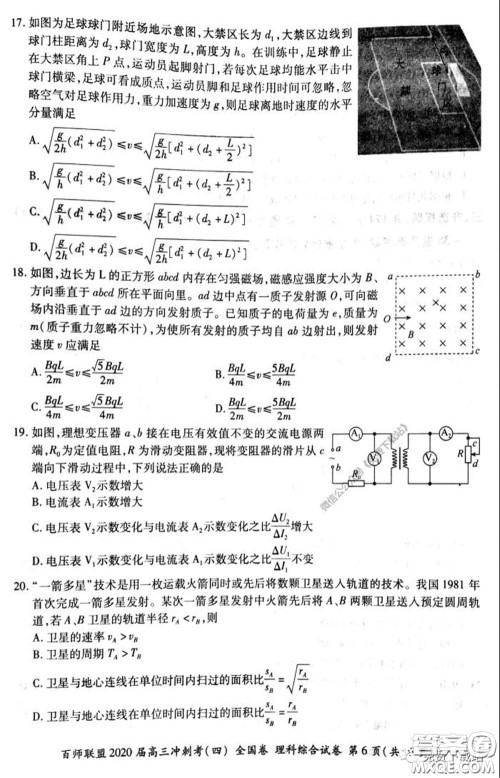 17. 如图为足球球门附近场地示意图,大禁区长为d₁,大禁区边线到
球门柱距离为d₂,球门宽度为L,高度为h。在训练中,足球静止
在大禁区角上P点,运动员起脚射门,若每次足球均能水平击中
球门横梁,足球可看成质点,运动员脚和足球作用时间可忽略,忽
略空气对足球作用力,重力加速度为g,则足球离地时速度的水平
分量满足
A. √(g/2h (d₁²+d₂²)) ≤v≤ √(g/2h [d₁²+(d₂+L/2)²])
B. √(g/h (d₁²+d₂²)) ≤v≤ √(g/h [d₁²+(d₂+L/2)²])
C. √(g/h (d₁²+d₂²)) ≤v≤ √(g/h [d₁²+(d₂+L)²])
D. √(g/2h (d₁²+d₂²)) ≤v≤ √(g/2h [d₁²+(d₂+L)²])
大禁区
球门
18. 如图,边长为L的正方形abcd内存在匀强磁场,磁感应强度大小为B、
方向垂直于abcd所在平面向里。ad边中点有一质子发射源O,可向磁
场内沿垂直于ad边的方向发射质子。已知质子的电荷量为e,质量为
m(质子重力忽略不计),为使所有发射的质子均自ab边射出,则发射
速度v应满足
A. BqL/2m ≤v≤ √5BqL/2m B. BqL/4m ≤v≤ 5BqL/4m
C. BqL/4m ≤v≤ √5BqL/2m D. BqL/2m ≤v≤ 5BqL/4m
a b
O
B
d c
19. 如图,理想变压器a、b接在电压有效值不变的交流电源两
端,R₀为定值电阻,R为滑动变阻器,现将变阻器的滑片从c
端向下滑动过程中,下列说法正确的是
A. 电压表V₂示数增大
B. 电流表A₂示数增大
C. 电压表V₂示数变化与电流表A₂示数变化之比ΔU₂/ΔI₂增大
D. 电压表V₁示数变化与电流表A₁示数变化之比ΔU₁/ΔI₁不变
A₁ A₂
a
b
V₁ V₂
R₀
R
c
d
20. “一箭多星”技术是用一枚运载火箭同时或先后将数颗卫星送入轨道的技术。我国1981年
首次完成一箭多星发射。某次一箭多星发射中火箭先后将A、B两颗卫星送入预定圆周轨
道,若A、B卫星的轨道半径r_A<r_B,则
A. 卫星的速率v_A>v_B
B. 卫星的周期T_A>T_B
C. 卫星与地心连线在单位时间内扫过的面积比s_A/s_B=√(r_A/r_B)
D. 卫星与地心连线在单位时间内扫过的面积比s_A/s_B=r_A/r_B
百师联盟2020届高三冲刺考(四) 全国卷 理科综合试卷 第6页(共